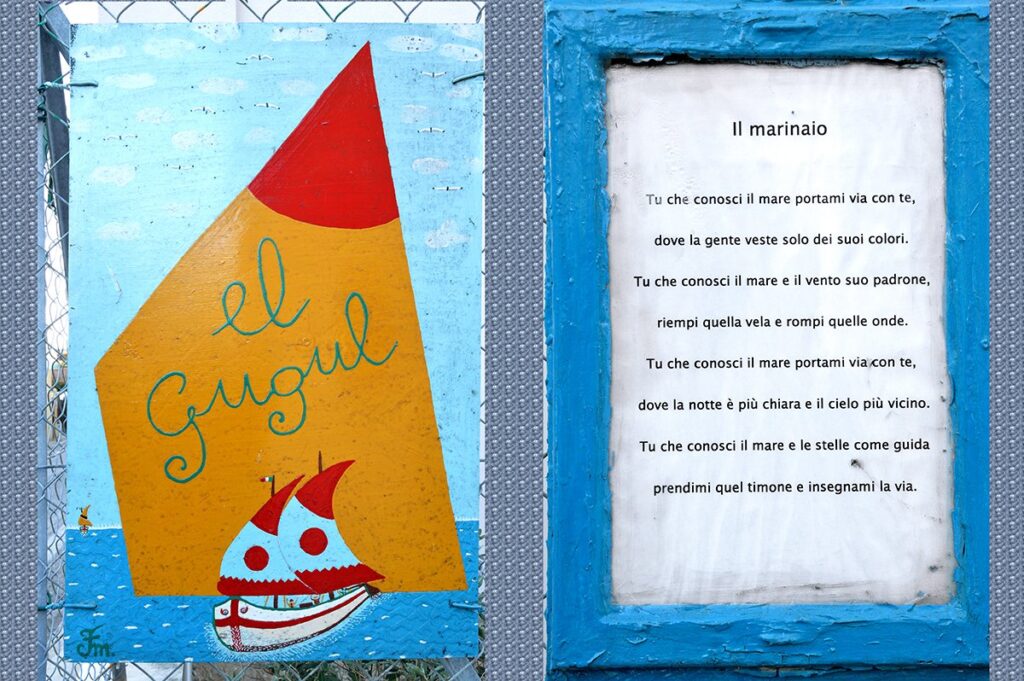 el
Gugul
Fm.
Il marinaio
Tu che conosci il mare portami via con te,
dove la gente veste solo dei suoi colori.
Tu che conosci il mare e il vento suo padrone,
riempi quella vela e rompi quelle onde.
Tu che conosci il mare portami via con te,
dove la notte è più chiara e il cielo più vicino.
Tu che conosci il mare e le stelle come guida
prendimi quel timone e insegnami la via.